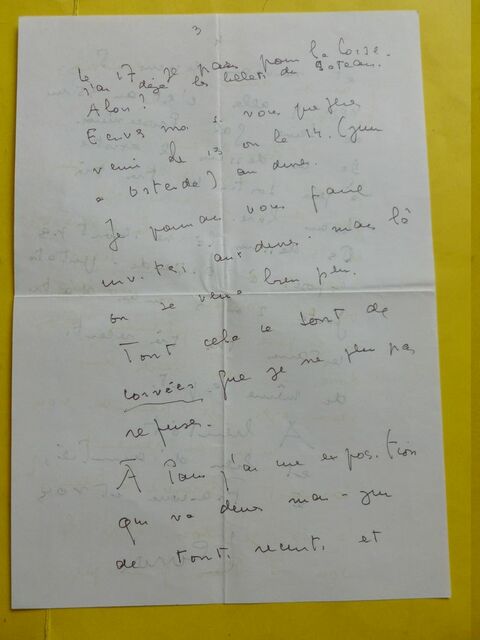 3
Le 17 je pars pour la Corse.
J'ai déjà les billets du Bateau.
Alors?
Ecrivez moi si vous préférez
venir le 13 ou le 14. (jeu
a ostende) au diner.
Je pourrai vous faire
inviter. au diner. mais là
on se verra bien peu.
Tout cela ce sont de
corvées que je ne peu pas
refuser.
A Paris j'ai une exposition
qui va de mai - juin
de tout. recent. et